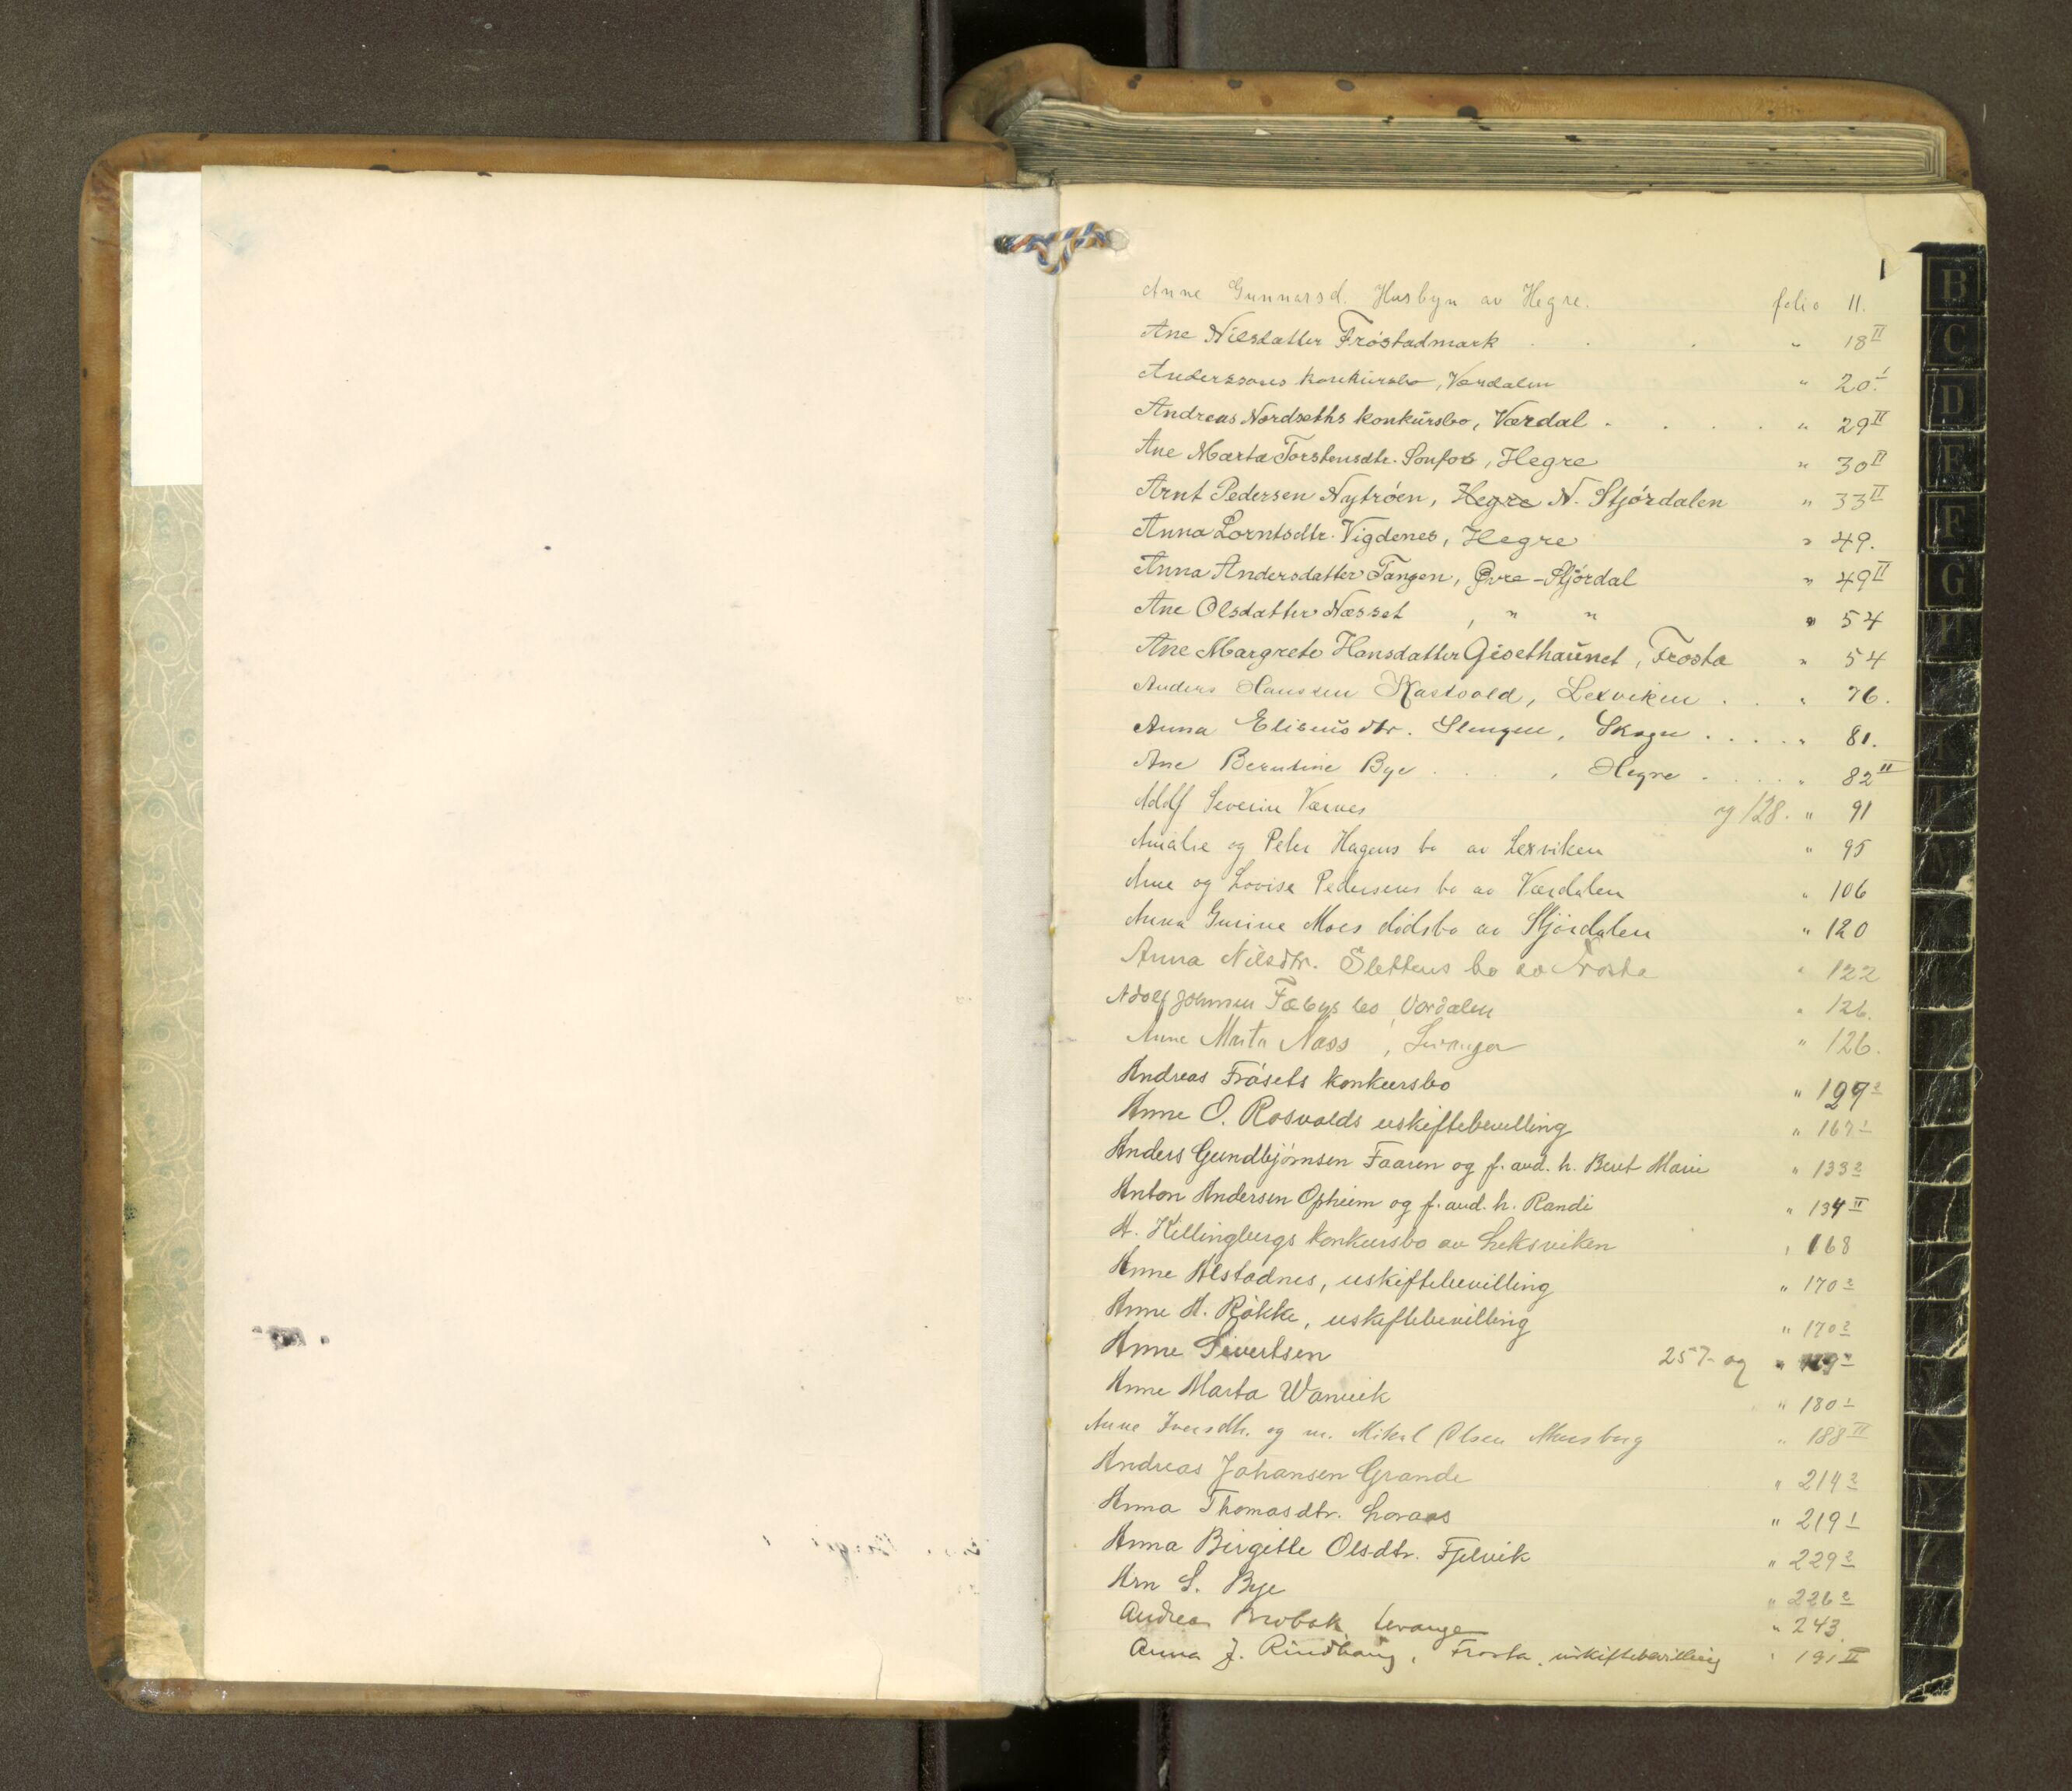 1
Anne Gunnarsd. Husbyn av Hegre. folio 11.
Ane Nilsdatter Fröstadmark " 18 II
Anderssons konkursbo, Værdalen " 20 I
Andreas Nordseths konkursbo, Værdal " 29 II
Ane Marta Torstensdtr. Sonfos, Hegre " 30 II
Arnt Pedersen Nytröen, Hegre N. Stjördalen " 33 II
Anna Lorntsdtr. Vigdenes, Hegre " 49.
Anna Andersdatter Tangen, Øvre-Stjördal " 49 II
Ane Olsdatter Næsset , " " " 54
Ane Margrete Hansdatter Gisethaunet, Frosta " 54
Anders Hanssen Kastvold, Lexviken . . " 76.
Anna Eliseusdtr. Slengen, Skogn . . . . " 81.
Ane Berntine Bye . . . , Hegre . . . . " 82 II
Adolf Severin Værnes og 128. " 91
Amalie og Peter Hagens bo av Lexviken " 95
Ane og Lovise Pedersens bo av Værdalen " 106
Anna Gurine Moes dödsbo av Stjördalen " 120
Anna Nilsdtr. Slettens bo av Frosta " 122
Adolf Johnsen Fæbys bo, Værdalen " 126.
Anne Marta Næss, Levanger " 126.
Andreas Frösets konkursbo "
Anne O. Rosvolds uskiftebevilling " 167 1
Anders Gundbjörnsen Faaren og f. avd. h. Berit Marie " 133 2
Anton Andersen Opheim og f. avd. h. Randi " 134 II
A. Killingbergs konkursbo av Leksviken " 168
Anne Alstadnes, uskiftebevilling " 170 2
Anne A. Rökke, uskiftebevilling " 170 2
Anne Sivertsen 257 og "
Anne Marta Wanvik " 180 1
Anne Iversdtr. og m. Mikal Olsen " 188 II
Andreas Johansen Grande " 214 2
Anna Thomasdtr. Loraas " 219 1
Anna Birgitte Olsdtr. Fjelvik " 229 2
Arn S. Bye " 226 2
Andreas Brobak, Levanger " 243.
Anna J. Rindhaug, Frosta, uskiftebevilling " 191 II
B
C
D
E
F
G